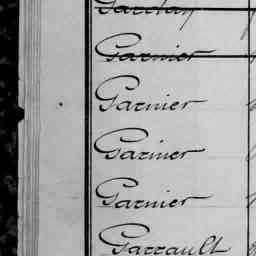 Garnier
Garnier
Garnier
Garnier
Garrault